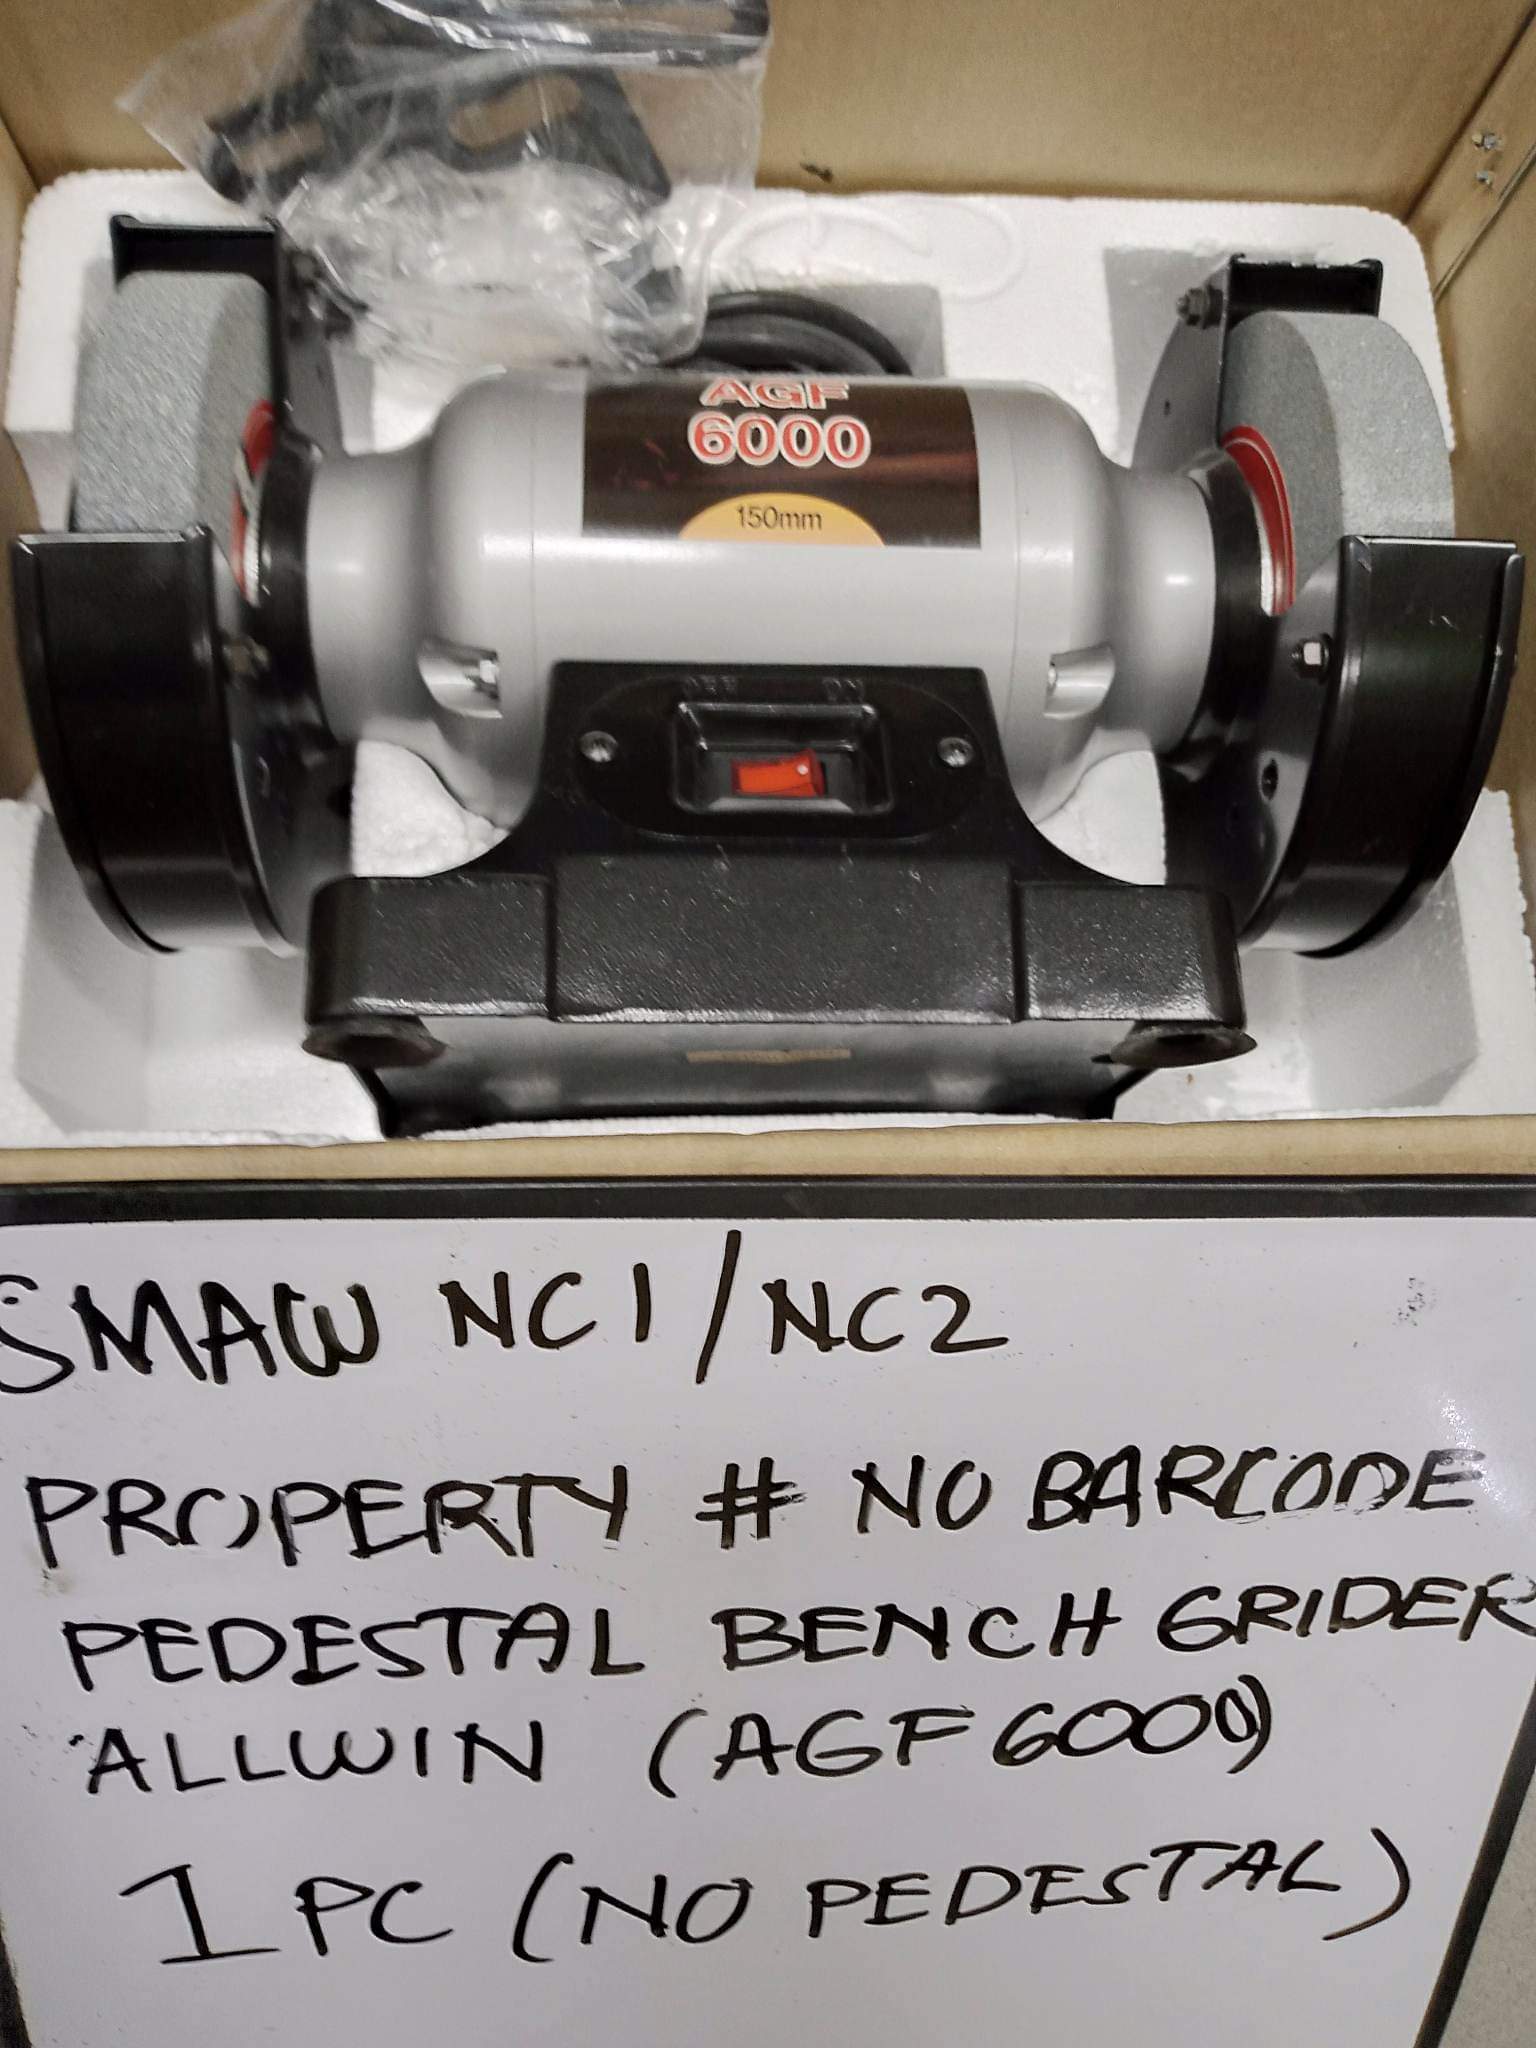 AGF
6000
150mm
OFF ON
SMAW NC1/NC2
PROPERTY # NO BARCODE
PEDESTAL BENCH GRIDER
ALLWIN (AGF6000)
1 PC (NO PEDESTAL)